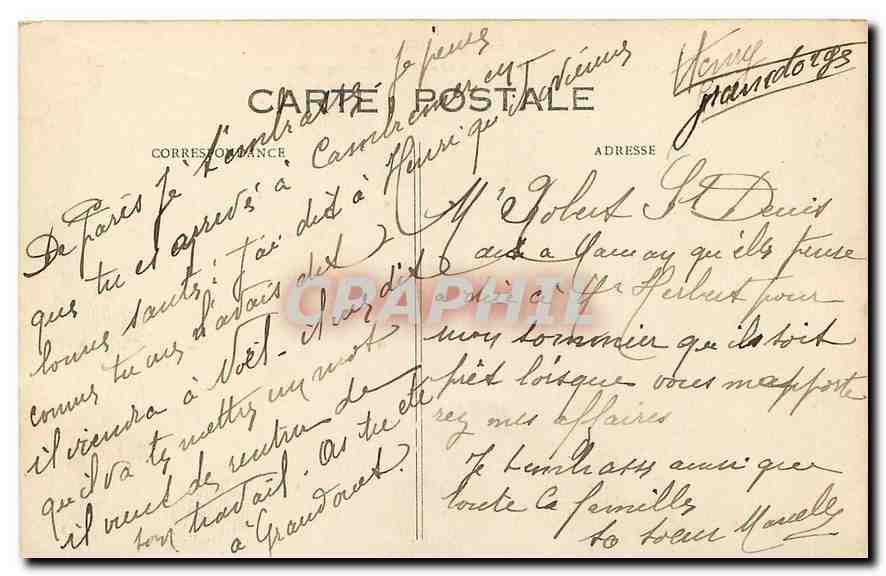 CARTE POSTALE
CORRESPONDANCE
ADRESSE
De Paris je t'embrasse je pense
que tu es arrivé à Cambremer en
bonne santé j'ai dit à Henri qu'il vienne
comme tu me l'avais dit
il viendra à Noël. il me dit
qu'il va te mettre un mot
il vient de rentrer de
son travail. As tu été
à Grandouet.
Henry
Mr Robert St Denis
dit a Maman qu'elle pense
a dire à Mr Herbert pour
mon sommier qu'il soit
prêt lorsque vous m'apporte
rez mes affaires
Je t'embrasse ainsi que
toute la famille
ta soeur Marcelle
CPAPHIL